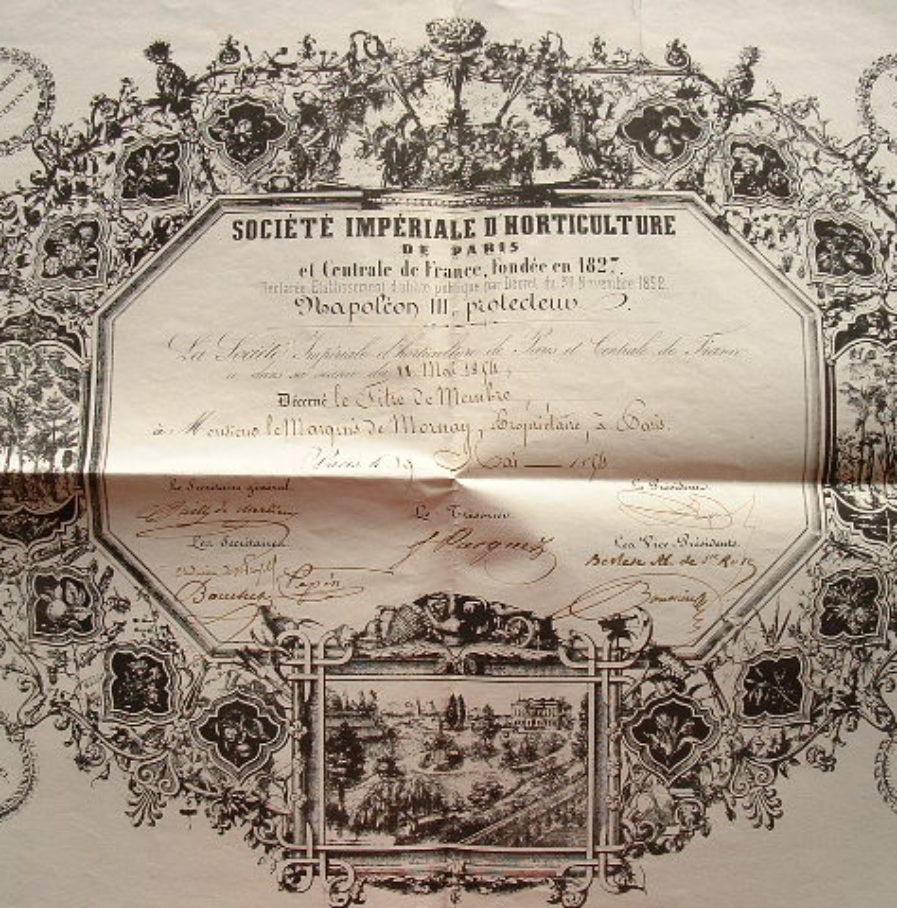 SOCIÉTÉ IMPÉRIALE D'HORTICULTURE
DE PARIS
et Centrale de France, Fondée en 1827.
Déclarée Etablissement d'utilité publique par Décret du 30 Novembre 1852
Napoléon III, protecteur.
La Société Impériale d'horticulture de Paris et Centrale de France
a dans sa séance du 11 Mai 1854,
Décerné le Titre de Membre,
à Monsieur le Marquis de Mornay, Propriétaire, à Paris.
Paris le 19 Mai 1854
Le Secrétaire général. Le Président.
Le Trésorier.
Les Secrétaires. Les Vice Présidents.
Pepin